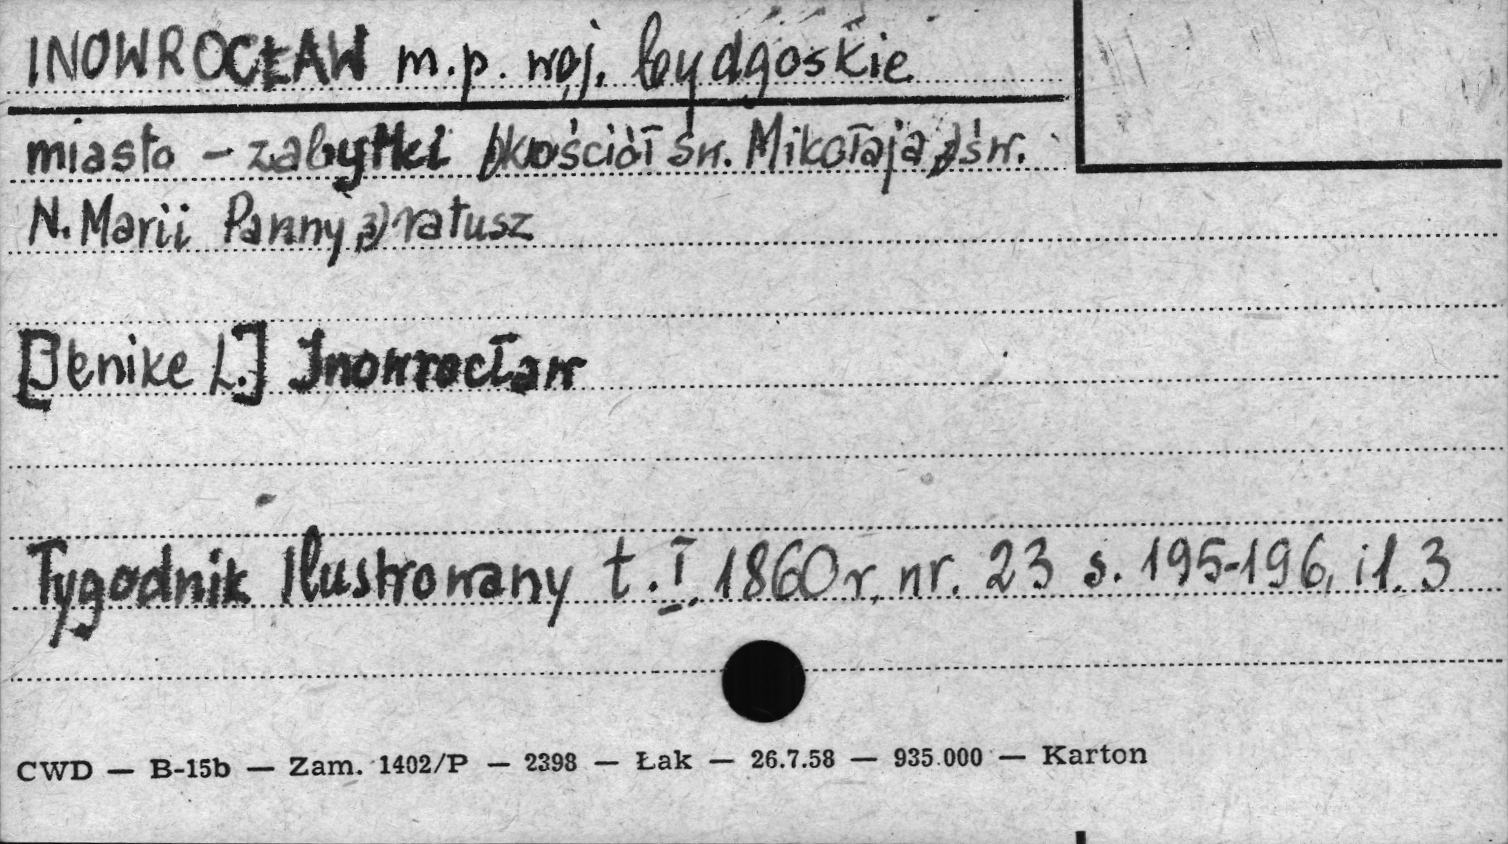 INOWROCŁAW m.p. woj. bydgoskie
miasto – zabytki 1) kościół św. Mikołaja 2) św.
N. Marii Panny 3) ratusz
[Jenike L.] Inowrocław
Tygodnik Ilustrowany t. I. 1860 r. nr. 23 s. 195-196, il. 3
CWD — B-15b — Zam. 1402/P — 2398 — Łak — 26.7.58 — 935.000 — Karton